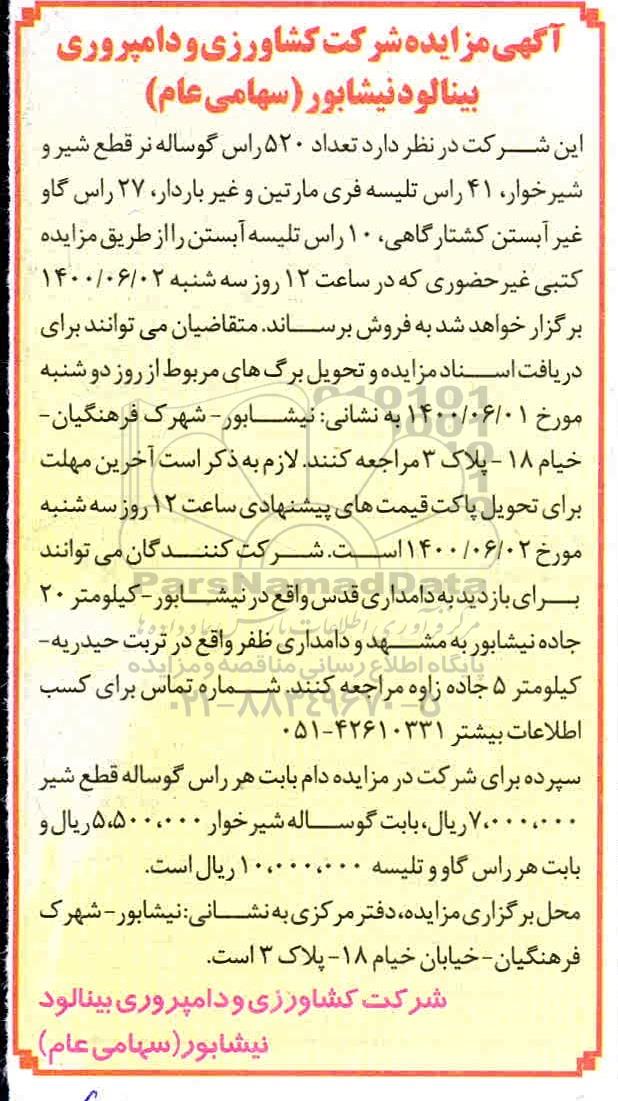 آگهی مزایده شرکت کشاورزی و دامپروری
بینالود نیشابور (سهامی عام)
این شرکت در نظر دارد تعداد ۵۲۰ راس گوساله نر قطع شیر و
شیرخوار، ۴۱ راس تلیسه فری مارتین و غیر باردار، ۲۷ راس گاو
غیر آبستن کشتارگاهی، ۱۰ راس تلیسه آبستن را از طریق مزایده
کتبی غیر حضوری که در ساعت ۱۲ روز سه شنبه ۱۴۰۰/۰۶/۰۲
برگزار خواهد شد به فروش برساند. متقاضیان می توانند برای
دریافت اسناد مزایده و تحویل برگ های مربوط از روز دو شنبه
مورخ ۱۴۰۰/۰۶/۰۱ به نشانی: نیشابور- شهرک فرهنگیان-
خیام ۱۸ - پلاک ۳ مراجعه کنند. لازم به ذکر است آخرین مهلت
برای تحویل پاکت قیمت های پیشنهادی ساعت ۱۲ روز سه شنبه
مورخ ۱۴۰۰/۰۶/۰۲ است. شرکت کنندگان می توانند
ParsNamadData
برای بازدید به دامداری قدس واقع در نیشابور- کیلومتر ۲۰
مرکز فرآوری اطلاعات پارس نماد داده ها
جاده نیشابور به مشهد و دامداری ظفر واقع در تربت حیدریه-
پایگاه اطلاع رسانی مناقصه و مزایده
کیلومتر ۵ جاده زاوه مراجعه کنند. شماره تماس برای کسب
۰۲۱-۸۸۳۴۹۶۷۰-۵
اطلاعات بیشتر ۴۲۶۱۰۳۳۱-۰۵۱
سپرده برای شرکت در مزایده دام بابت هر راس گوساله قطع شیر
۷،۰۰۰،۰۰۰ ریال، بابت گوساله شیرخوار ۵،۵۰۰،۰۰۰ ریال و
بابت هر راس گاو و تلیسه ۱۰،۰۰۰،۰۰۰ ریال است.
محل برگزاری مزایده، دفتر مرکزی به نشانی: نیشابور- شهرک
فرهنگیان- خیابان خیام ۱۸- پلاک ۳ است.
شرکت کشاورزی و دامپروری بینالود
نیشابور (سهامی عام)